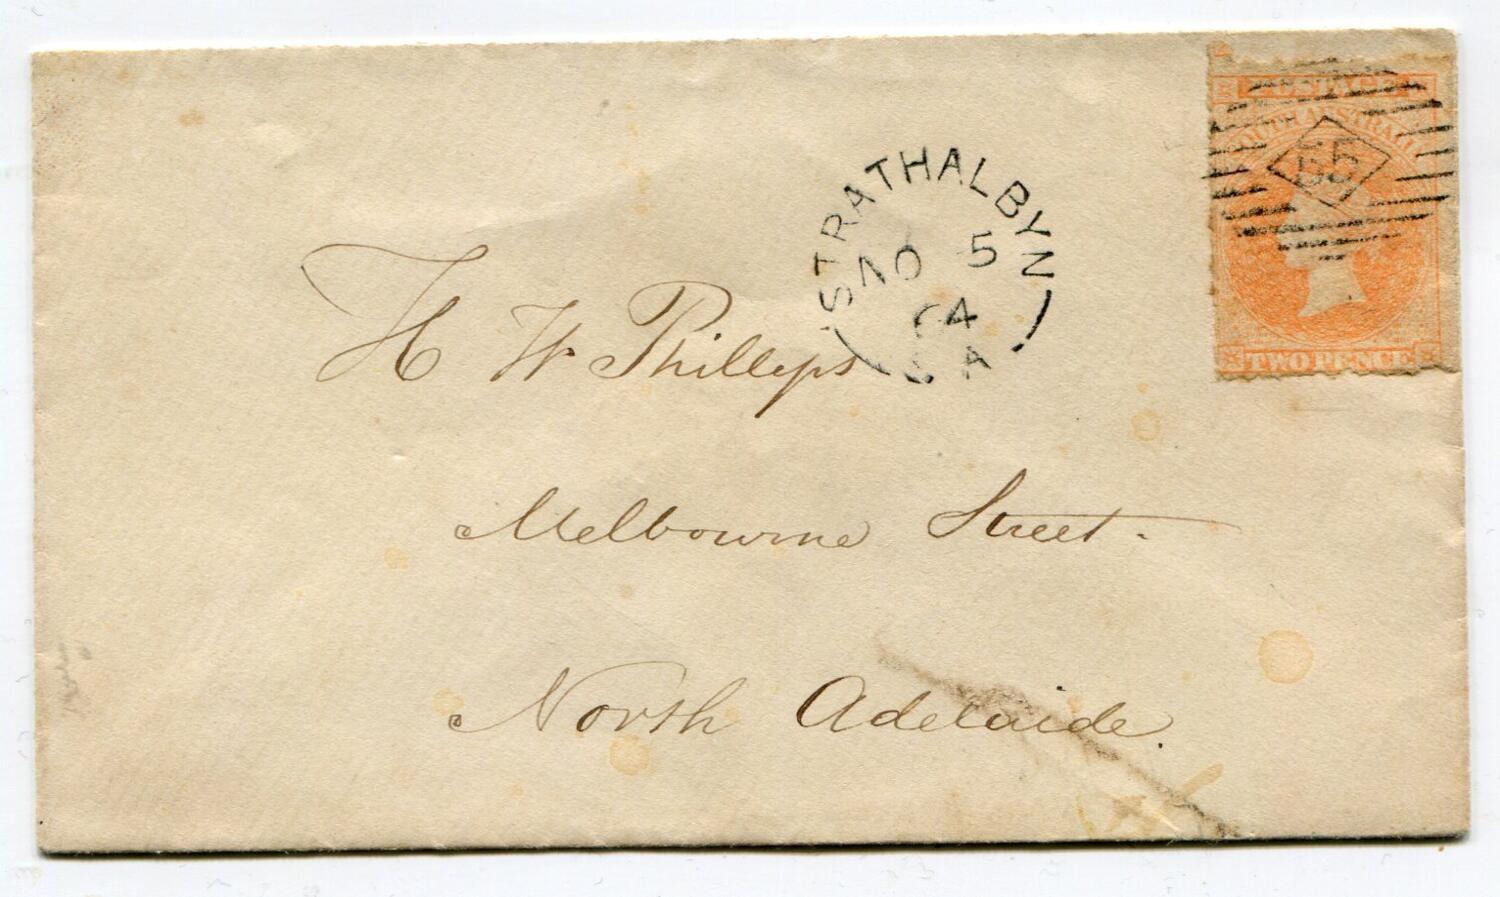 POSTAGE
SOUTH AUSTRALIA
55
TWO PENCE
STRATHALBYN
NO 5
64
S A
H W Phillips
Melbourne Street.
North Adelaide.